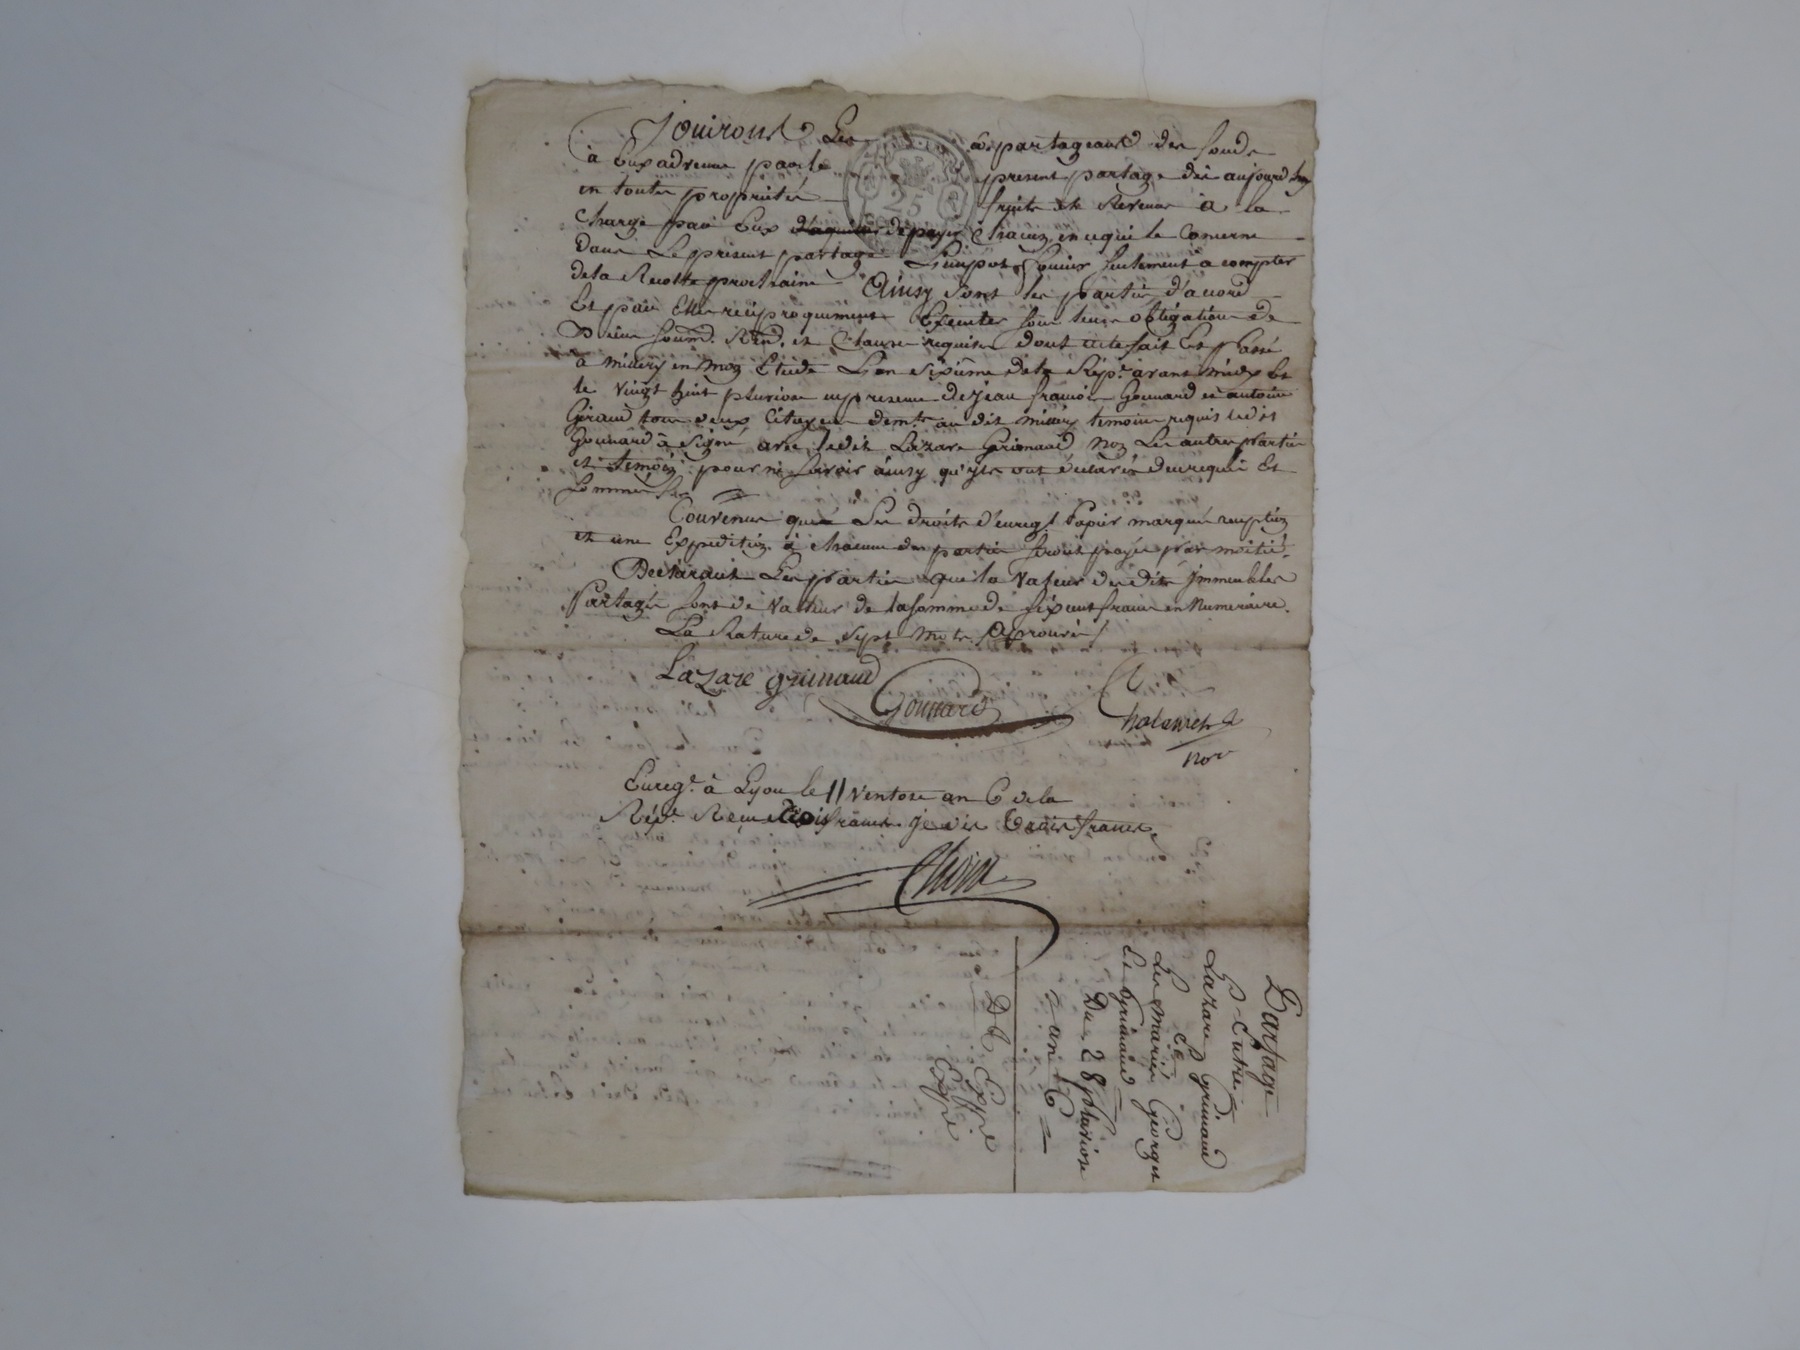 Jouiront Les co partageant des fonds
à Eux advenus par le present partage dès aujourd'huy
en toutes propriétés fruits et Revenus à la
Charge par Eux de payer Chacun en ce qui le Concerne
dans Le present partage L'impot foncier seulement a compter
de la Recolte prochaine Ainsy sont les parties d'accord
Et par Elles reciproquement Executer sous leurs obligations de
Biens soum.ⁿ Ren.ⁿ et Clauses requises dont acte fait Et Passé
a millery en mon Etude L'an sixieme de la Rep.e avant midy Et
le vingt huit pluviose en presence de Jean francois Gonnard et antoine
Giraud tous deux Citoyens dem.ts au dit millery temoins requis le dit
Gonnard a signé avec ledit Lazare Grimaud non Les autres parties
et temoin pour ne savoir ainsy qu'ils ont déclarés de ce requis Et
Sommés
Convenus que Les droits d'enreg.t Papier marqué reception
et une Expedition à chacune des parties seront payés par moitié.
Declarant Les parties que la valeur desdits immeubles
Partagés sont de valeur de la somme de six cent francs en Numeraire.
La Rature de sept mots aprouvée
Lazare grimaud
Gonnard
Not.re
Enreg.é à Lyon le 11 ventose an 6 de la
Rep.e Reçu trois francs je dis trois francs
Partage
Entre
Lazare Grimaud
Et
Les mariés Georges
Et Grimaud
Du 28 pluviose
an 6
Exp.e
Exp.e
25